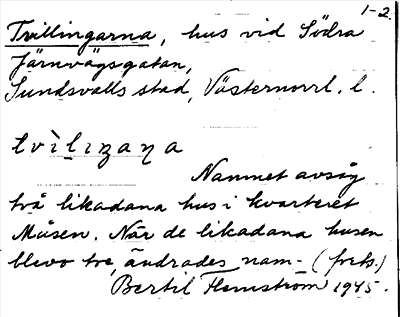 1-2.
Trillingarna, hus vid Södra
Järnvägsgatan,
Sundsvalls stad, Västernorrl. l.
Namnet avsåg
två likadana hus i kvarteret
Måsen. När de likadana husen
blevo tre, ändrades nam- (forts.)
Bertil Flemström 1945.